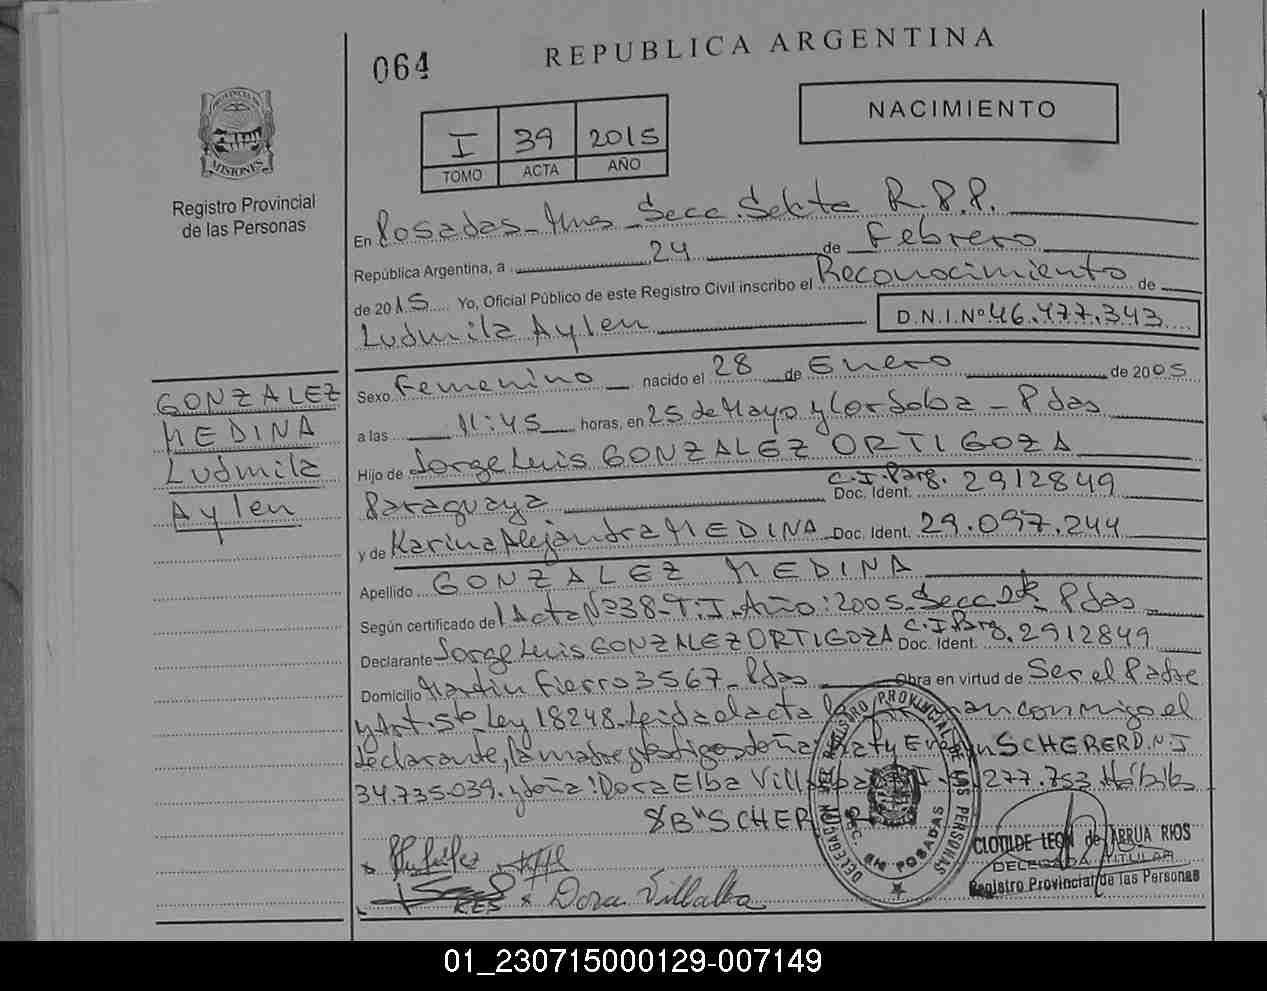 064
REPUBLICA ARGENTINA
NACIMIENTO
I 39 2015
TOMO ACTA AÑO
PROVINCIA DE MISIONES
Registro Provincial
de las Personas
En Posadas - Mns - Secc. Sexta R.P.P.
República Argentina, a 24 de Febrero
de 2015 Yo, Oficial Público de este Registro Civil inscribo el Reconocimiento de
Ludmila Aylen D.N.I. Nº 46.477.343
GONZALEZ
MEDINA
Ludmila
Aylen
Sexo Femenino nacido el 28 de Enero de 2005
a las 11:45 horas, en 25 de Mayo y Cordoba - Pdas
Hijo de Jorge Luis GONZALEZ ORTIGOZA
Paraguaya C.I. Parg. Doc. Ident. 2912849
y de Karina Alejandra MEDINA Doc. Ident. 29.097.244
Apellido GONZALEZ MEDINA
Según certificado de Acta Nº 38 - T: I - Año: 2005 - Secc Pdas
Declarante Jorge Luis GONZALEZ ORTIGOZA C.I. Parg. Doc. Ident. 2912849
Domicilio Martin Fierro 3567 - Pdas Obra en virtud de Ser el Padre
y Art. 5to Ley 18248. Leida el acta la conmigo el
declarante, la madre y testigos doña: SCHERER D.N.I
34.735.039. y doña: Dora Elba 277.753
"SCHER
Dora Villalba
DELEGACION REGISTRO PROVINCIAL DE LAS PERSONAS
SEC. 6H POSADAS
CLOTILDE LEON de ARRUA RIOS
DELEGADA TITULAR
Registro Provincial de las Personas
01_230715000129-007149